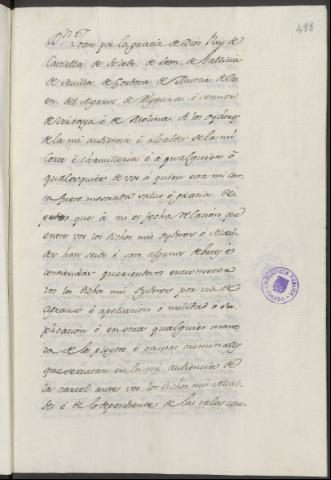 498
Dn. Joan por la gracia de Dios Rey de
Castilla, de Toledo, de Leon, de Gallicia
de Sevilla, de Cordova, de Murcia, de Ja-
en, del Algarve, de Algecira, é Señor
de Vizcaya é de Molina. A los oydores
de la mi audiencia é alcaldes de la mi
Corte é Chancilleria é á qualquier ó
qualesquier de vos á quien esta mi car-
ta fuere mostrada salud é gracia. Se-
pades que á mi es fecha relacion que
entre vos los dichos mis Oydores é Alcal-
des han seido é son algunos debates é
contiendas queriendovos entrometer
vos los dichos mis Oydores por via de
agravio é apelacion ó nulidad ó su-
plicacion ó en otra qualquier mane-
ra de los pleytos é causas criminales
que se tratan en la mi audiencia de
la carcel ante vos los dichos mis Alcal-
des é de lo dependiente de las tales cau-
BIBLIOTECA PÚBLICA
TOLEDO